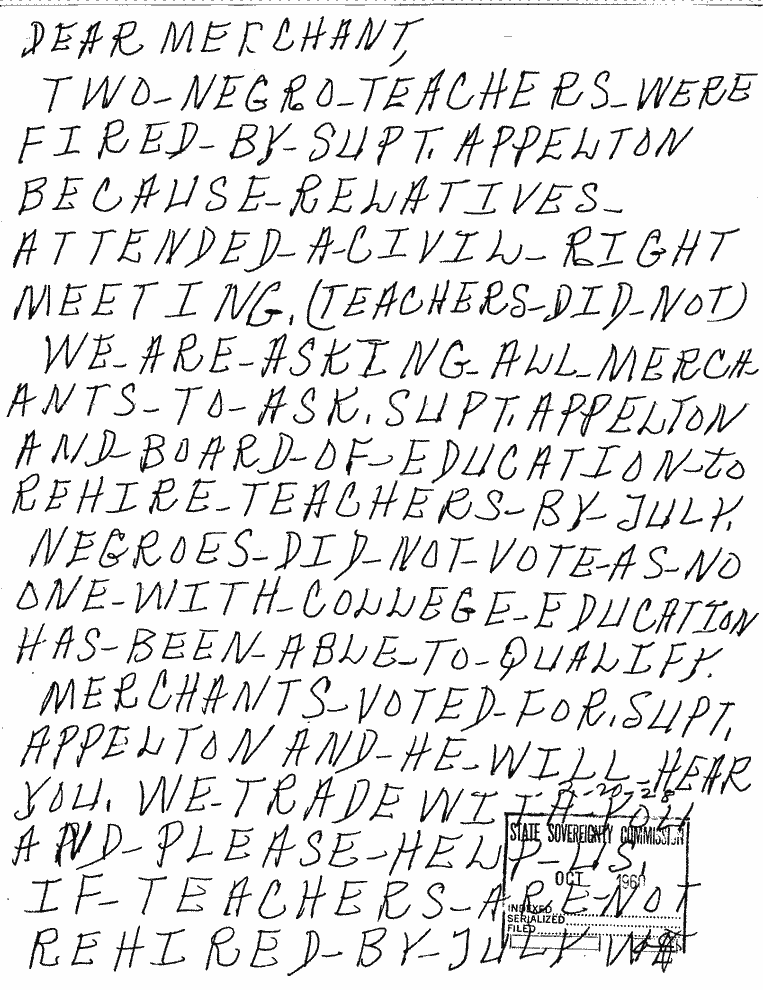 DEAR MERCHANT,
TWO-NEGRO-TEACHERS-WERE
FIRED-BY-SUPT. APPELTON
BECAUSE-RELATIVES-
ATTENDED-A-CIVIL-RIGHT
MEETING. (TEACHERS-DID-NOT)
WE-ARE-ASKING-ALL-MERCH
ANTS-TO-ASK. SUPT. APPELTON
AND-BOARD-OF-EDUCATION-to
REHIRE-TEACHERS-BY-JULY.
NEGROES-DID-NOT-VOTE-AS-NO
ONE-WITH-COLLEGE-EDUCATION
HAS-BEEN-ABLE-TO-QUALIFY.
MERCHANTS-VOTED-FOR. SUPT.
APPELTON AND-HE-WILL-HEAR
YOU. WE-TRADE WITH-YOU
AND-PLEASE-HELP-US.
IF-TEACHERS-ARE-NOT
REHIRED-BY-JULY WE
2-20-28
STATE SOVEREIGNTY COMMISSION
OCT 1960
INDEXED
SERIALIZED
FILED